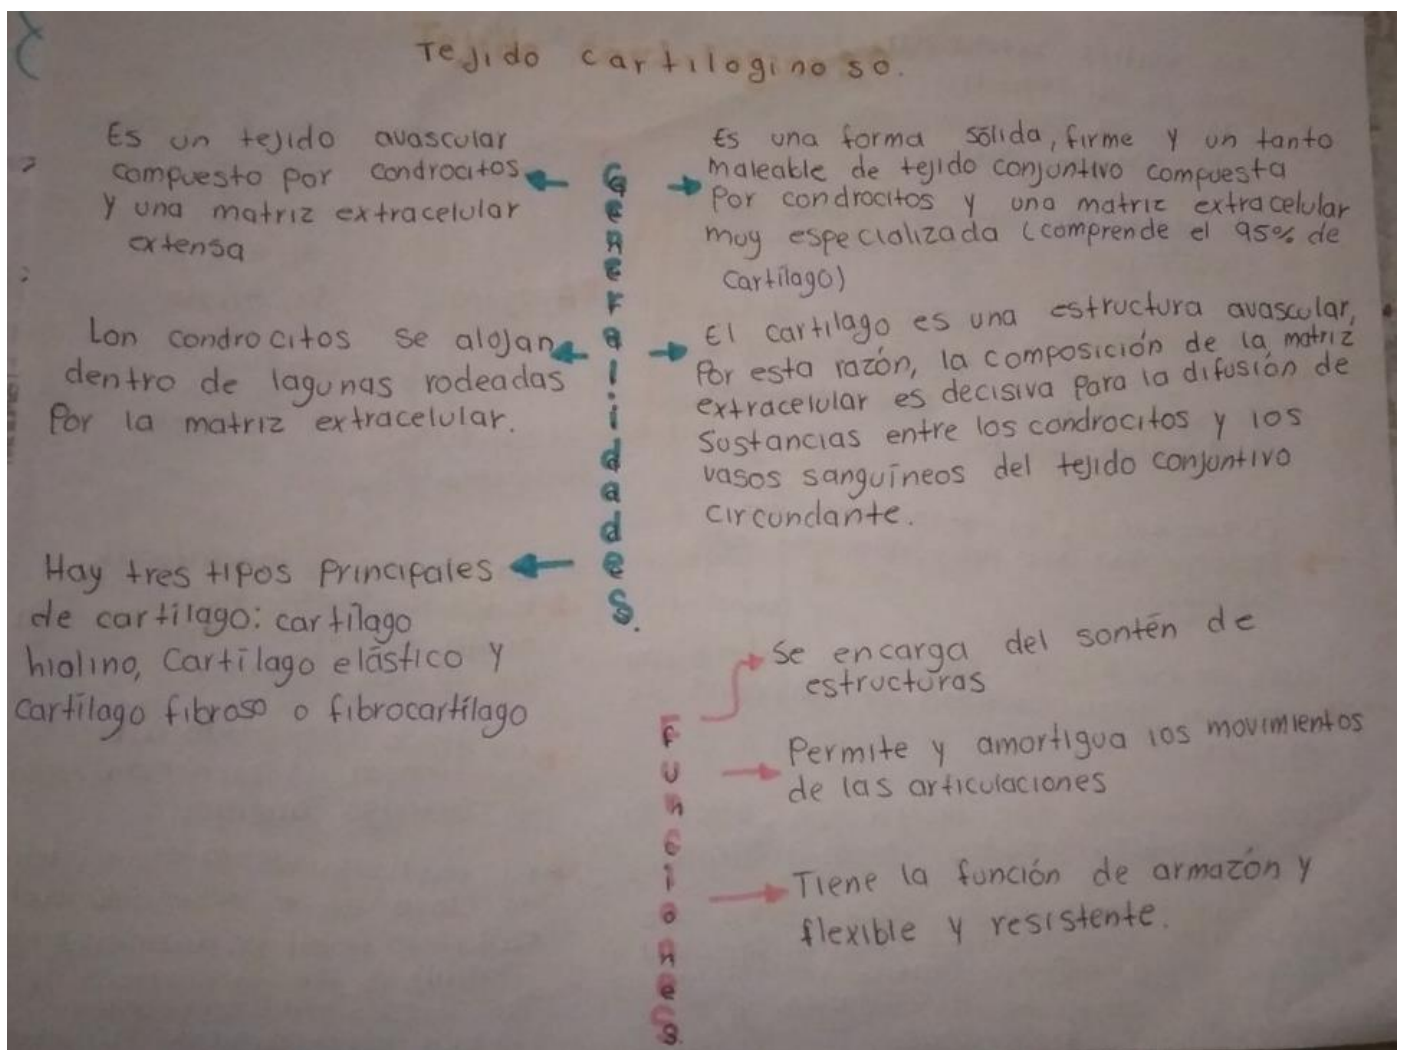 Tejido cartiloginoso.
Es un tejido avascular
compuesto por condrocitos
y una matriz extracelular
extensa
Lon condrocitos se alojan
dentro de lagunas rodeadas
Por la matriz extracelular.
Hay tres tipos Principales
de cartilago: cartílago
hialino, Cartílago elástico y
cartílago fibroso o fibrocartílago
Generalidades.
Es una forma sólida, firme y un tanto
maleable de tejido conjuntivo compuesta
Por condrocitos y una matriz extracelular
muy especializada (comprende el 95% de
cartílago)
El cartilago es una estructura avascular,
Por esta razón, la composición de la matriz
extracelular es decisiva Para la difusión de
Sustancias entre los condrocitos y los
vasos sanguíneos del tejido conjuntivo
circundante.
Funciones.
Se encarga del sontén de
estructuras
Permite y amortigua los movimientos
de las articulaciones
Tiene la función de armazón y
flexible y resistente.